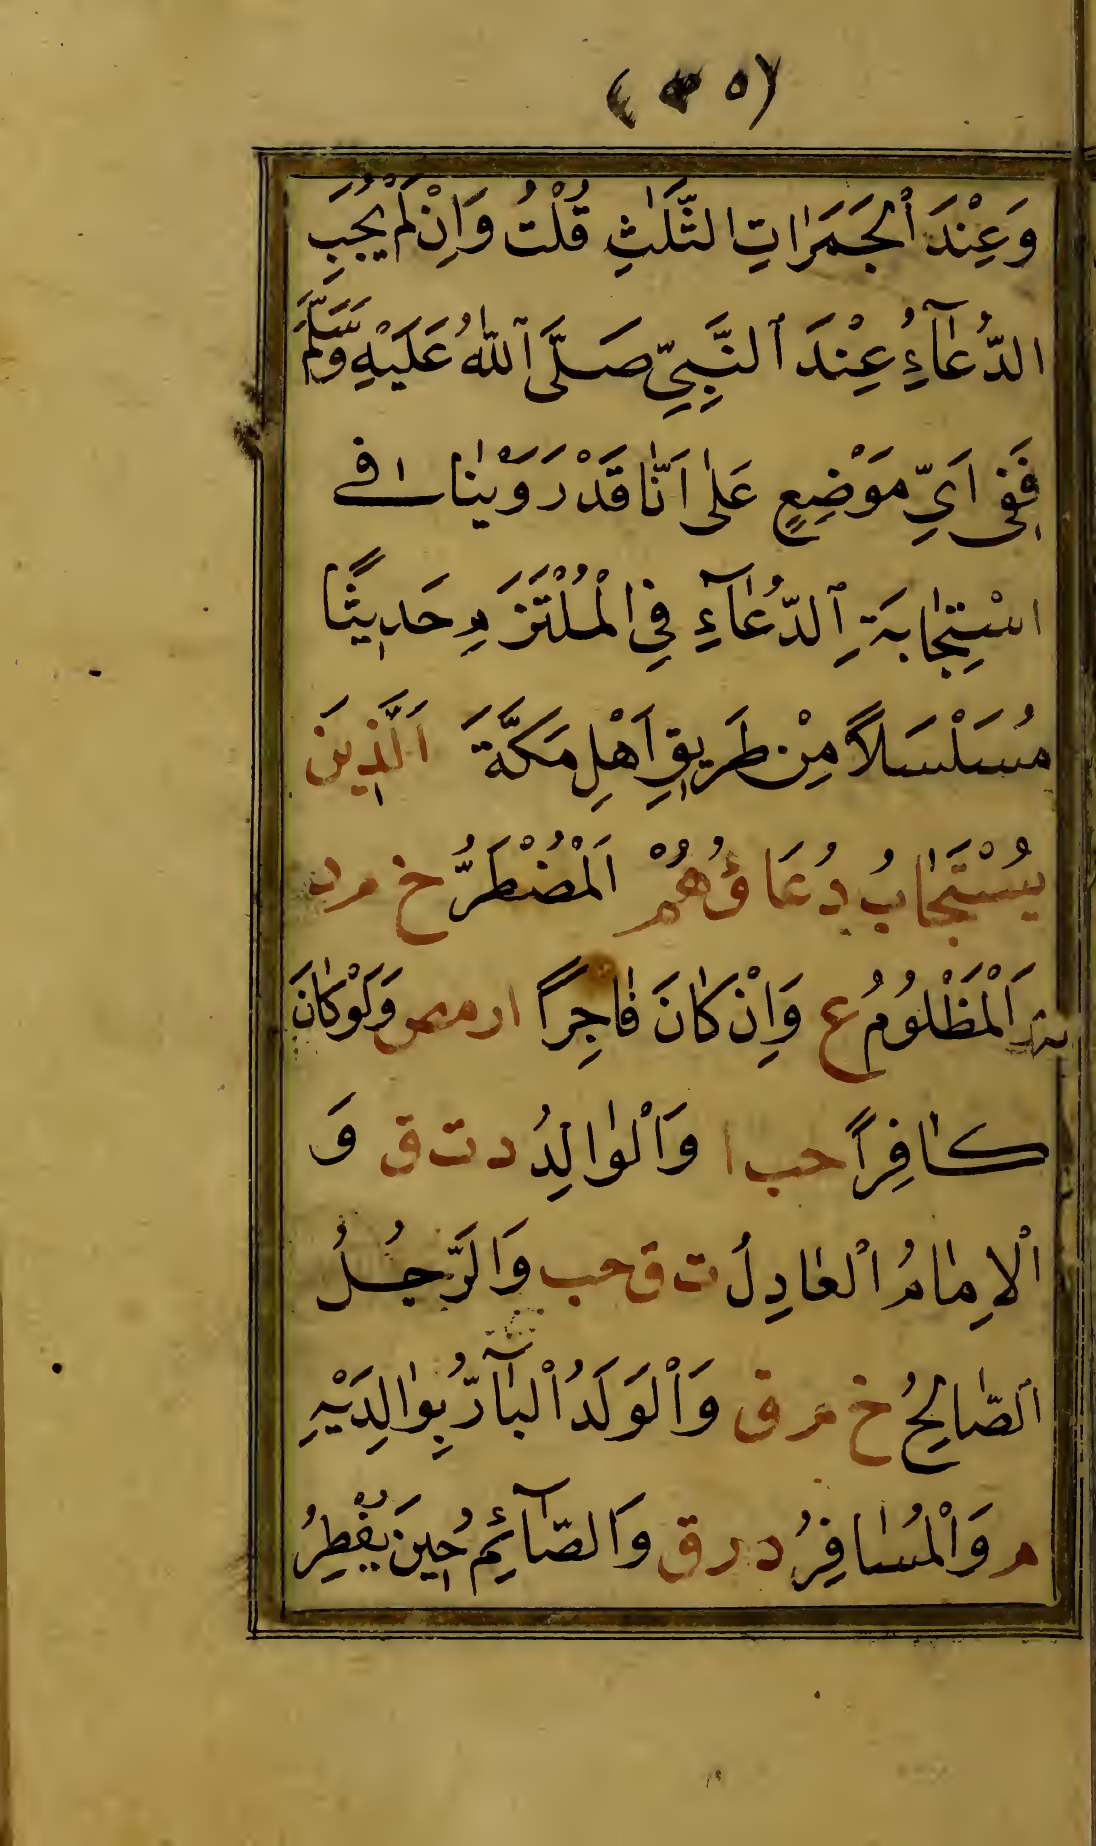 وَعِنْدَ ٱلْجَمَرَاتِ الثَّلٰثِ قُلْتُ وَاِنْ لَمْ يُجَبِ
الدُّعَآءُِ عِنْدَ ٱلنَّبِيِّ صَلَّى ٱللّٰهُ عَلَيْهِ وَسَلَّمَ
فَفِى اَىِّ مَوْضِعٍ عَلٰى اَنَّا قَدْ رَوَيْنَا فِى
اسْتِجَابَةِ ٱلدُّعَآءِ فِى الْمُلْتَزَمِ حَدِيثًا
مُسَلْسَلاً مِنْ طَرِيقِ اَهْلِ مَكَّةَ اَلَّذِينَ
يُسْتَجَابُ دُعَاؤُهُمْ اَلْمُضْطَرُّ خ م د
اَلْمَظْلُومُ ع وَاِنْ كَانَ فَاجِرًا ا ر مص وَلَوْ كَانَ
كَافِرًا حب ا وَالْوَالِدُ د ت ق وَ
الْاِمَامُ الْعَادِلُ ت ق حب وَالرَّجُلُ
ٱلصَّالِحُ خ م ق وَٱلْوَلَدُ ٱلْبَآرُّ بِوَالِدَيْهِ
م وَالْمُسَافِرُ د ر ق وَالصَّآئِمُ حِينَ يُفْطِرُ